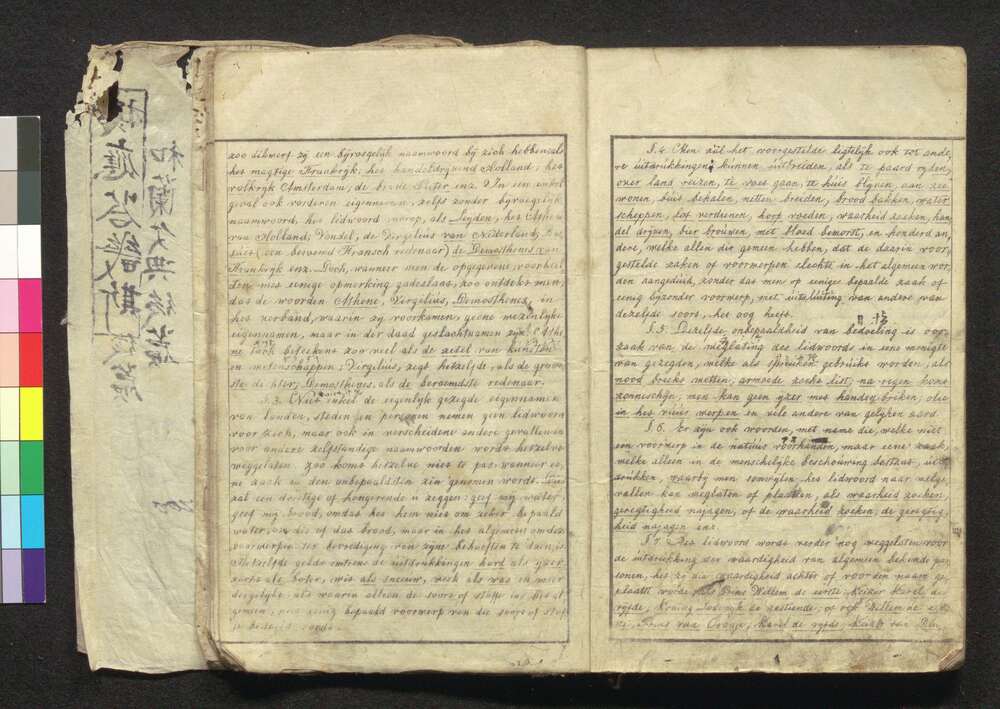 zoo dikwerf zij een bijvoegelijk naamwoord bij zich hebben, als
het magtige Frankryk; het handeldryvend Holland; het
volkryk Amsterdam; de brave Pieter enz. In een enkel
geval ook vorderen eigennamen, zelfs zonder byvoegelyk
naamwoord, het lidwoord voorop, als Leyden, het Athene
van Holland, Vondel, de Virgelius van Nederland,
(een beroemd Fransch redenaar) de Demosthenes van
Frankryk enz. Doch, wanneer men de opgegevene voorbeel
den met eenige opmerking gadeslaat, zoo ontdekt men,
dat de woorden Athene, Virgelius, Demosthenes, in
het verband, waarin zy voorkomen, geene wezenlyke
eigennamen, maar in der daad geslachtnamen zyn. Athe
ne toch beteekent zoo veel als de zetel van kunsten
en wetenschappen; Virgelius, zegt hetzelfde, als de groot
ste dichter, Demosthenes, als de beroemdste redenaar.
§. 3. Niet enkel de eigenlyk gezegde eigennamen
van landen, steden en personen nemen geen lidwoord
voor zich, maar ook in verscheidene andere gevallen en
voor andere zelfstandige naamwoorden wordt hetzelve
weggelaten. Zoo komt hetzelve niet te pas, wanneer ee
ne zaak in den onbepaaldsten zin genomen wordt.
zal een dorstige of hongerende u zeggen: geef my water,
geef my brood, omdat het hem niet om zeker bepaald
water, om dit of dat brood, maar in het algemeen om de
voorwerpen ter bevrediging van zyne behoeften te doen is.
Hetzelfde geldt omtrent de uitdrukkingen hard als yzer
zacht als boter, wit als sneeuw, week als was en meer
dergelyke als waarin alleen de soort of stoffe in het al
gemeen, niet eenig bepaald voorwerp van die soort of stof
fe bedoeld wordt.
§. 4. Men zal het voorgestelde ligtelyk ook tot ande,
re uitdrukkingen kunnen uitbreiden, als te paard ryden,
over land reizen, te voet gaan, te huis blyven, aan zee
wonen, buit behalen, netten breiden, brood bakken, water
scheppen, lof verdienen, hoop voeden, waarheid zoeken, han
del dryven, bier brouwen, met bloed bemorst, en honderd an
dere, welke allen dit gemeen hebben, dat de daarin voor
gestelde zaken of voorwerpen slechts in het algemeen wor
den aangeduid, zonder dat men op eenige bepaalde zaak of
eenig byzonder voorwerp, met uitsluiting van andere van
dezelfde soort, het oog heeft.
§. 5. Dezelfde onbepaaldheid van bedoeling is oor
zaak van de weglating des lidwoords in eene menigte
van gezegden, welke als spreuken gebruikt worden, als
nood breekt wetten, armoede zoekt list, na regen komt
zonneschyn, men kan geen yzer met handen breken, olie
in het vuur werpen en vele andere van gelyken aard.
§. 6. Er zyn ook woorden, met name die, welke niet
een voorwerp in de natuur voorhanden, maar eene zaak,
welke alleen in de menschelyke beschouwing bestaat, uit
drukken, waarby men somwylen het lidwoord naar welge
vallen kan weglaten of plaatsen, als waarheid zoeken,
geregtigheid najagen, of de waarheid zoeken, de geregtig
heid najagen enz.
§. 7. Het lidwoord wordt verder nog weggelaten voor
de uitdrukking der waardigheid van algemeen bekende per
sonen, het zy die waardigheid achter of voor den naam ge
plaatst worde, als Prins Willem de eerste, Keizer Karel de
vyfde, Koning Lodewyk de zestiende; of ook Willem de eer
ste, Prins van Oranje, Karel de vyfde, Keizer van